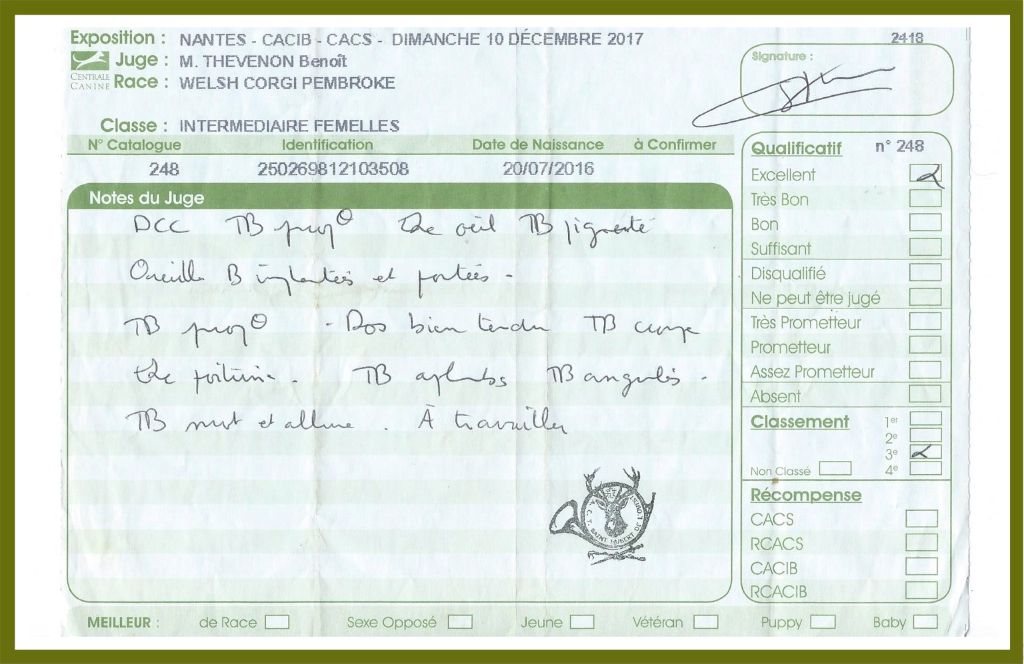 Exposition : NANTES - CACIB - CACS - DIMANCHE 10 DÉCEMBRE 2017
2418
CENTRALE CANINE
Juge : M. THEVENON Benoît
Race : WELSH CORGI PEMBROKE
Signature :
Classe : INTERMEDIAIRE FEMELLES
N° Catalogue Identification Date de Naissance à Confirmer
248 250269812103508 20/07/2016
Notes du Juge
DCC TB prop° œil TB pigmenté
Oreille B implantées et portées -
TB prop° - Dos bien tendu TB croupe
poitrine - TB aplombs TB angulés -
TB mvt et allure . À travailler
SAINT HUBERT
Qualificatif n° 248
Excellent
Très Bon
Bon
Suffisant
Disqualifié
Ne peut être jugé
Très Prometteur
Prometteur
Assez Prometteur
Absent
Classement 1er
2e
3e
Non Classé 4e
Récompense
CACS
RCACS
CACIB
RCACIB
MEILLEUR : de Race Sexe Opposé Jeune Vétéran Puppy Baby